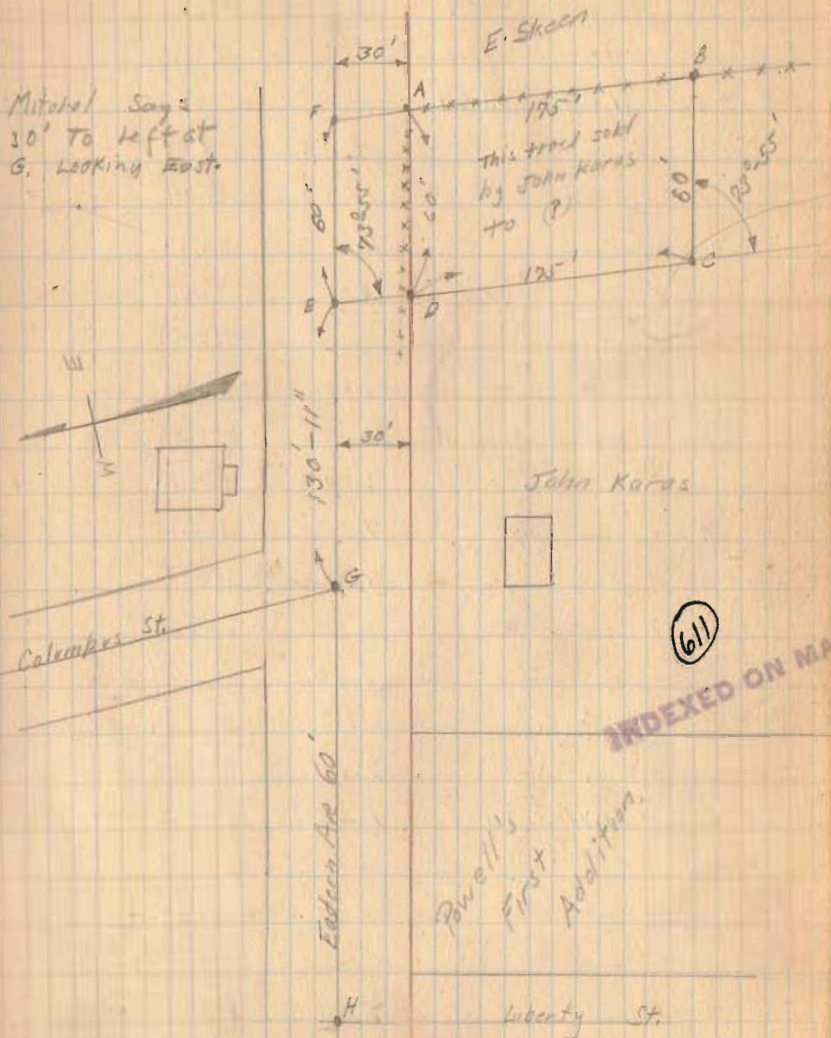 E. Skeen
30'
Mitchel Says
30' To Left at
G. Looking East.
F
A
B
175'
This tract sold
by John Karas
to (?)
60'
73°55'
60'
60'
73°55'
E
D
C
175'
E
W
130'-11"
30'
John Karas
G
Columbus St.
611
INDEXED ON MA
Eastern Ave 60'
Powell's
First
Addition.
H
Liberty St.